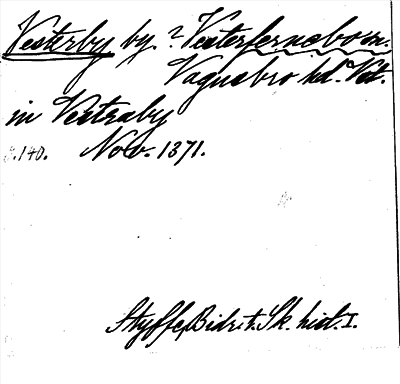 Vesterby by. ? Vesterfernebo sn.
Vagnsbro hd. Vst.
in Vestraby
s.140. Nov. 1371.
Styffe, Bidr. t. Sk. hist. I.